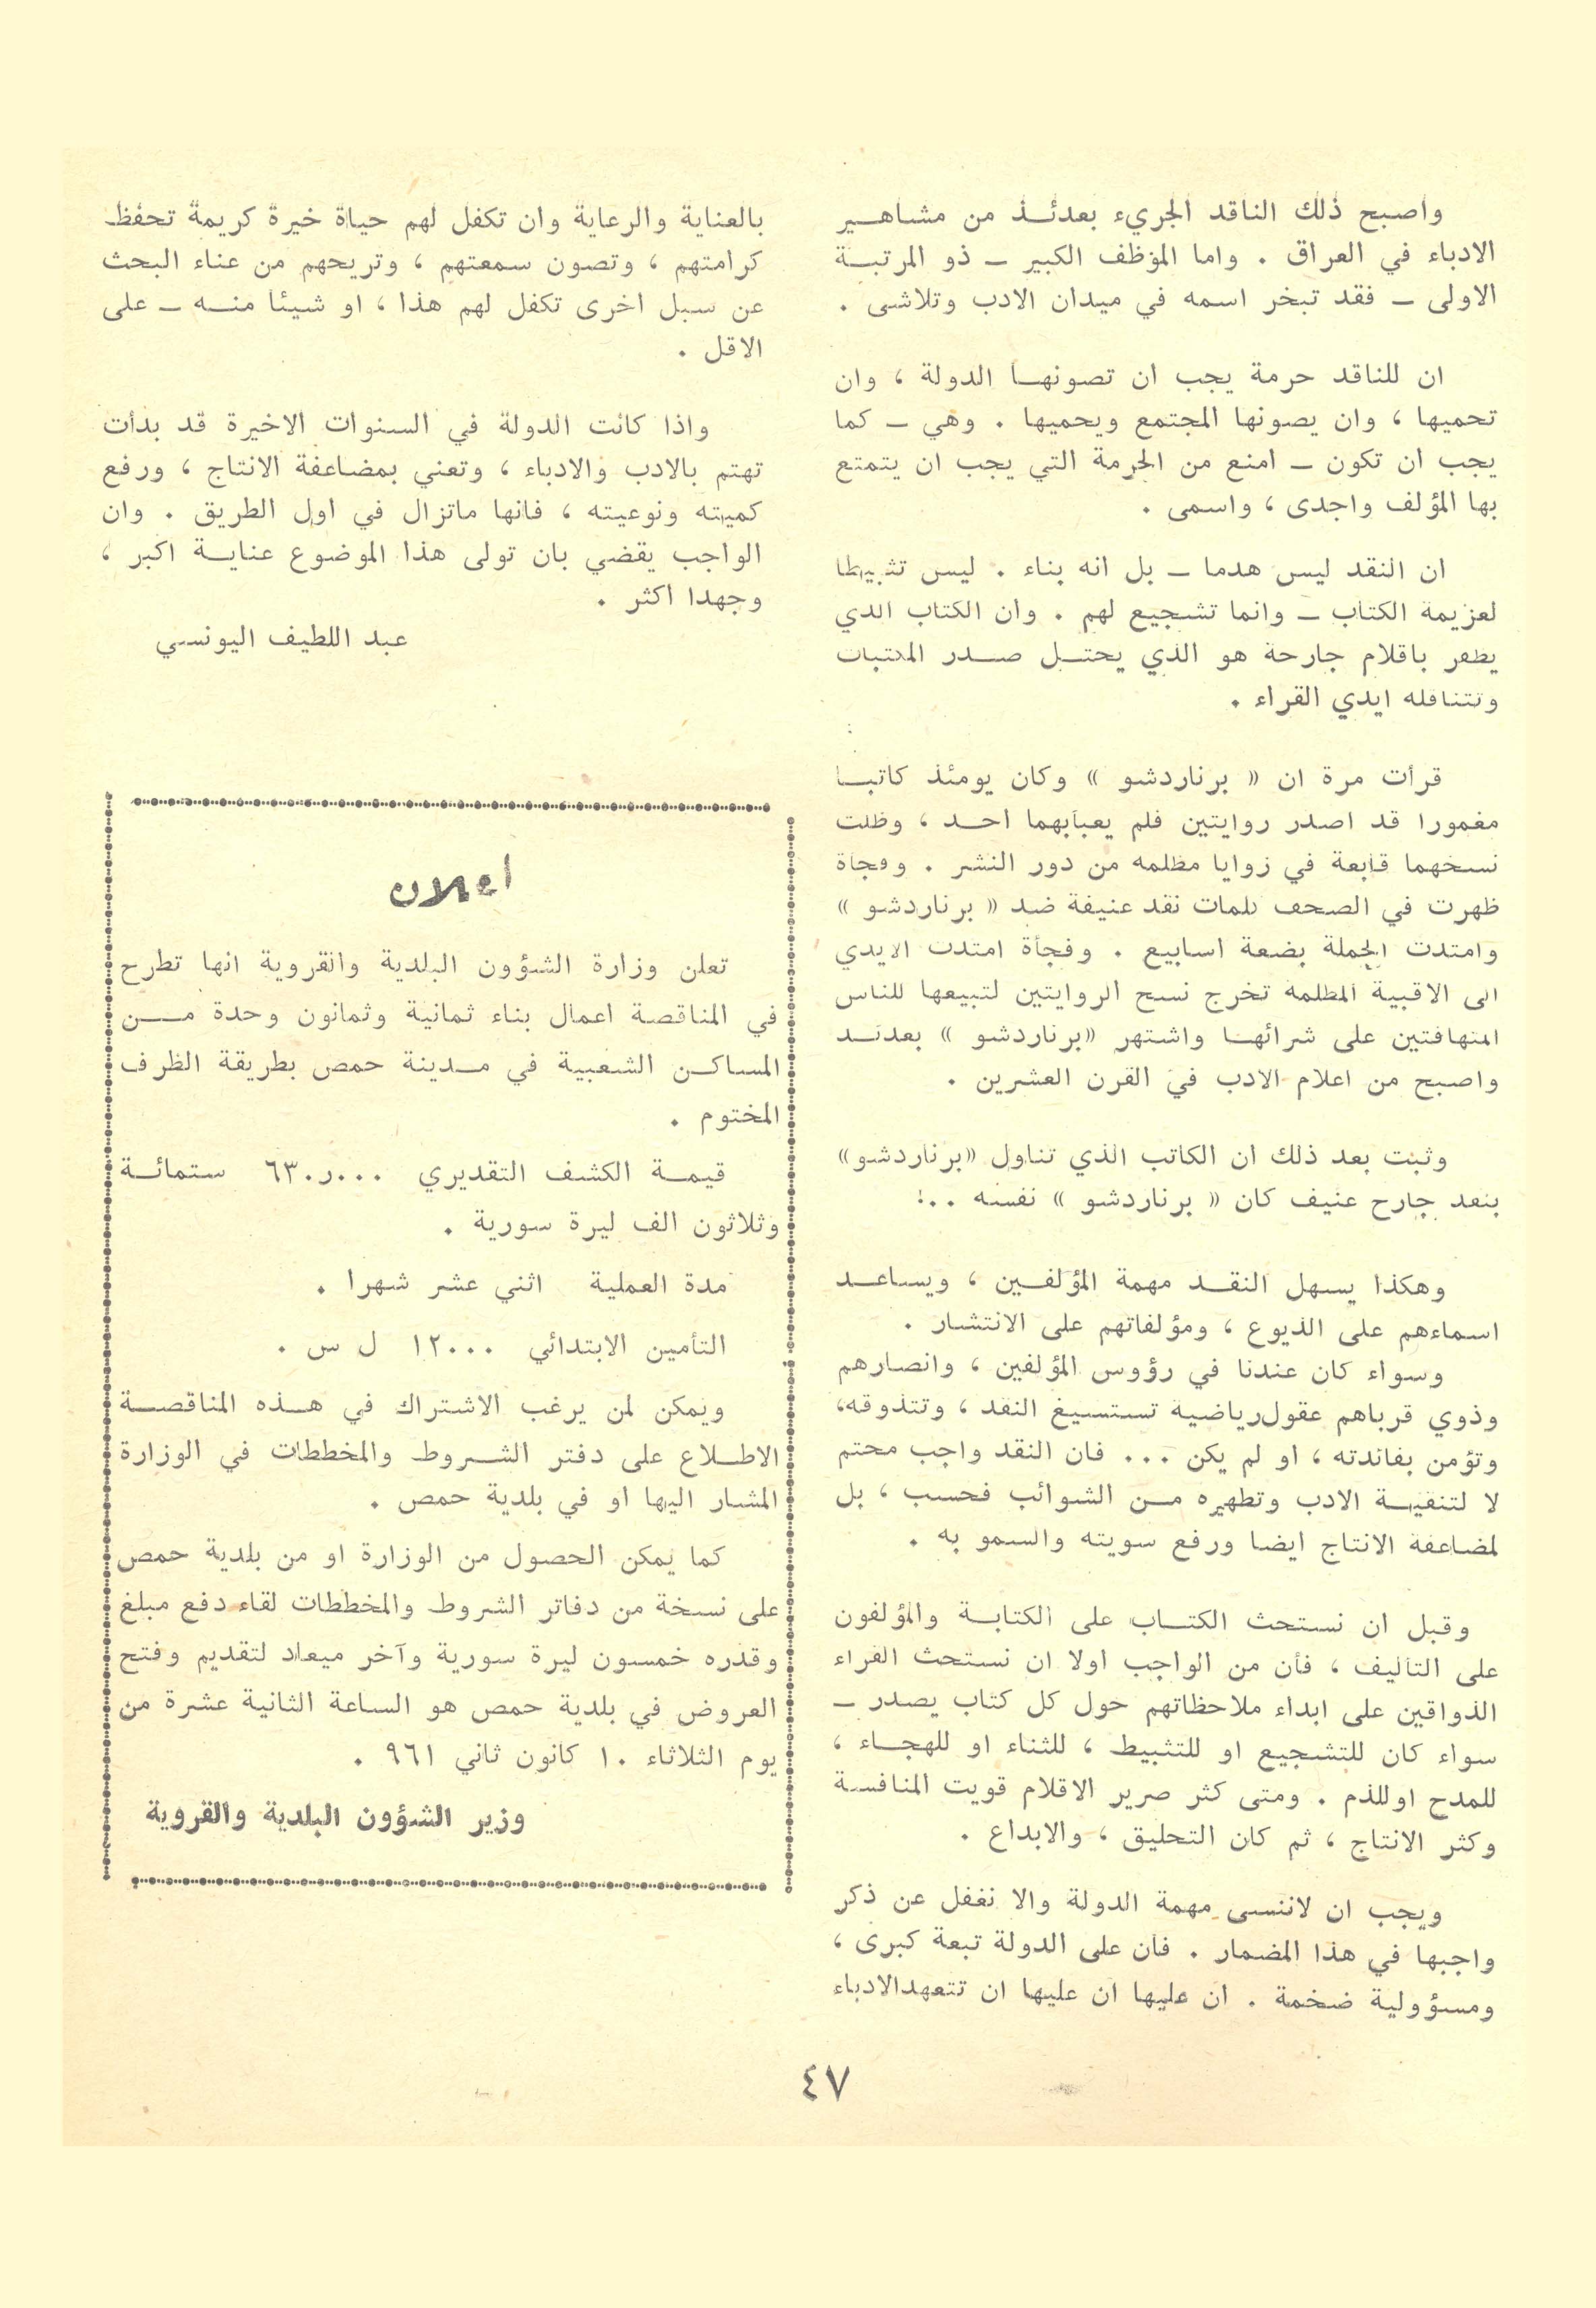 واصبح ذلك الناقد الجريء بعدئـذ من مشاهـير
الادباء في العراق . واما المؤظف الكبير ــ ذو المرتبـة
الاولى ــ فقد تبخر اسمه في ميدان الادب وتلاشى .
ان للناقد حرمة يجب ان تصونهـا الدولة ، وان
تحميها ، وان يصونها المجتمع ويحميها . وهي ــ كما
يجب ان تكون ــ امنع من الحرمة التي يجب ان يتمتع
بها المؤلف واجدى ، واسمى .
ان النقد ليس هدما ــ بل انه بناء . ليس تثبيطا
لعزيمة الكتاب ــ وانما تشجيع لهم . وان الكتاب الذي
يظفر باقلام جارحة هو الذي يحتـل صـدر المكتبات
وتتناقله ايدي القراء .
قرأت مرة ان « برناردشو » وكان يومئذ كاتبـا
مغمورا قد اصدر روايتين فلم يعبأبهما احـد ، وظلت
نسخهما قابعة في زوايا مظلمه من دور النشر . وفجاة
ظهرت في الصحف كلمات نقد عنيفة ضد « برناردشو »
وامتدت الحملة بضعة اسابيع . وفجأة امتدت الايدي
الى الاقبية المظلمة تخرج نسخ الروايتين لتبيعها للناس
المتهافتين على شرائهـا واشتهر «برناردشو » بعدئـذ
واصبح من اعلام الادب في القرن العشرين .
وثبت بعد ذلك ان الكاتب الذي تناول «برناردشو»
بنقد جارح عنيف كان « برناردشو » نفسه ..!
وهكذا يسهل النقـد مهمة المؤلفـين ، ويساعـد
اسماءهم على الذيوع ، ومؤلفاتهم على الانتشار .
وسواء كان عندنا في رؤوس المؤلفين ، وانصارهم
وذوي قرباهم عقول رياضية تستسيغ النقد ، وتتذوقه،
وتؤمن بفائدته ، او لم يكن ... فان النقد واجب محتم
لا لتنقيـة الادب وتطهيره مـن الشوائب فحسب ، بل
لمضاعفة الانتاج ايضا ورفع سويته والسمو به .
وقبل ان نستحث الكتـاب على الكتابـة والمؤلفون
على التأليف ، فأن من الواجب اولا ان نستحث القراء
الذواقين على ابداء ملاحظاتهم حول كل كتاب يصدر ــ
سواء كان للتشجيع او للتثبيط ، للثناء او للهجـاء ،
للمدح اوللذم . ومتى كثر صرير الاقلام قويت المنافسة
وكثر الانتاج ، ثم كان التحليق ، والابداع .
ويجب ان لاننسى مهمة الدولة والا نغفل عن ذكر
واجبها في هذا المضمار . فان على الدولة تبعة كبرى ،
ومسؤولية ضخمة . ان عليها ان عليها ان تتعهدالادباء
بالعناية والرعاية وان تكفل لهم حياة خيرة كريمة تحفظ
كرامتهم ، وتصون سمعتهم ، وتريحهم من عناء البحث
عن سبل اخرى تكفل لهم هذا ، او شيئا منـه ــ على
الاقل .
واذا كانت الدولة في السنوات الاخيرة قد بدأت
تهتم بالادب والادباء ، وتعني بمضاعفة الانتاج ، ورفع
كميته ونوعيته ، فانها ماتزال في اول الطريق . وان
الواجب يقضي بان تولى هذا الموضوع عنايـة اكبر ،
وجهدا اكثر .
عبد اللطيف اليونسي
اعلان
تعلن وزارة الشؤون البلدية والقروية انها تطرح
في المناقصة اعمال بناء ثمانية وثمانون وحدة مــن
المساكـن الشعبية في مـدينة حمص بطريقة الظرف
المختوم .
قيمـة الكشف التقديري ٦٣٠ر٠٠٠ ستمائـة
وثلاثون الف ليرة سورية .
مدة العملية اثني عشر شهرا .
التأمين الابتدائي ١٢٠٠٠ ل س .
ويمكن لمن يرغب الاشتراك في هـذه المناقصـة
الاطـلاع على دفتر الشـروط والمخططات في الوزارة
المشار اليها او في بلدية حمص .
كما يمكن الحصول من الوزارة او من بلدية حمص
على نسخة من دفاتر الشروط والمخططات لقاء دفع مبلغ
وقدره خمسون ليرة سورية وآخر ميعاد لتقديم وفتح
العروض في بلدية حمص هو الساعة الثانية عشرة من
يوم الثلاثاء ١٠ كانون ثاني ٩٦١ .
وزير الشؤون البلدية والقروية
٤٧